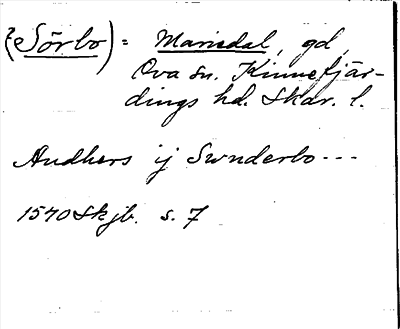 (?Sörbo) = Mariedal, gd,
Ova sn. Kinnefjär-
dings hd. Skar. l.
Andhers ij Swnderbo---
1540 Skjb. s. 7